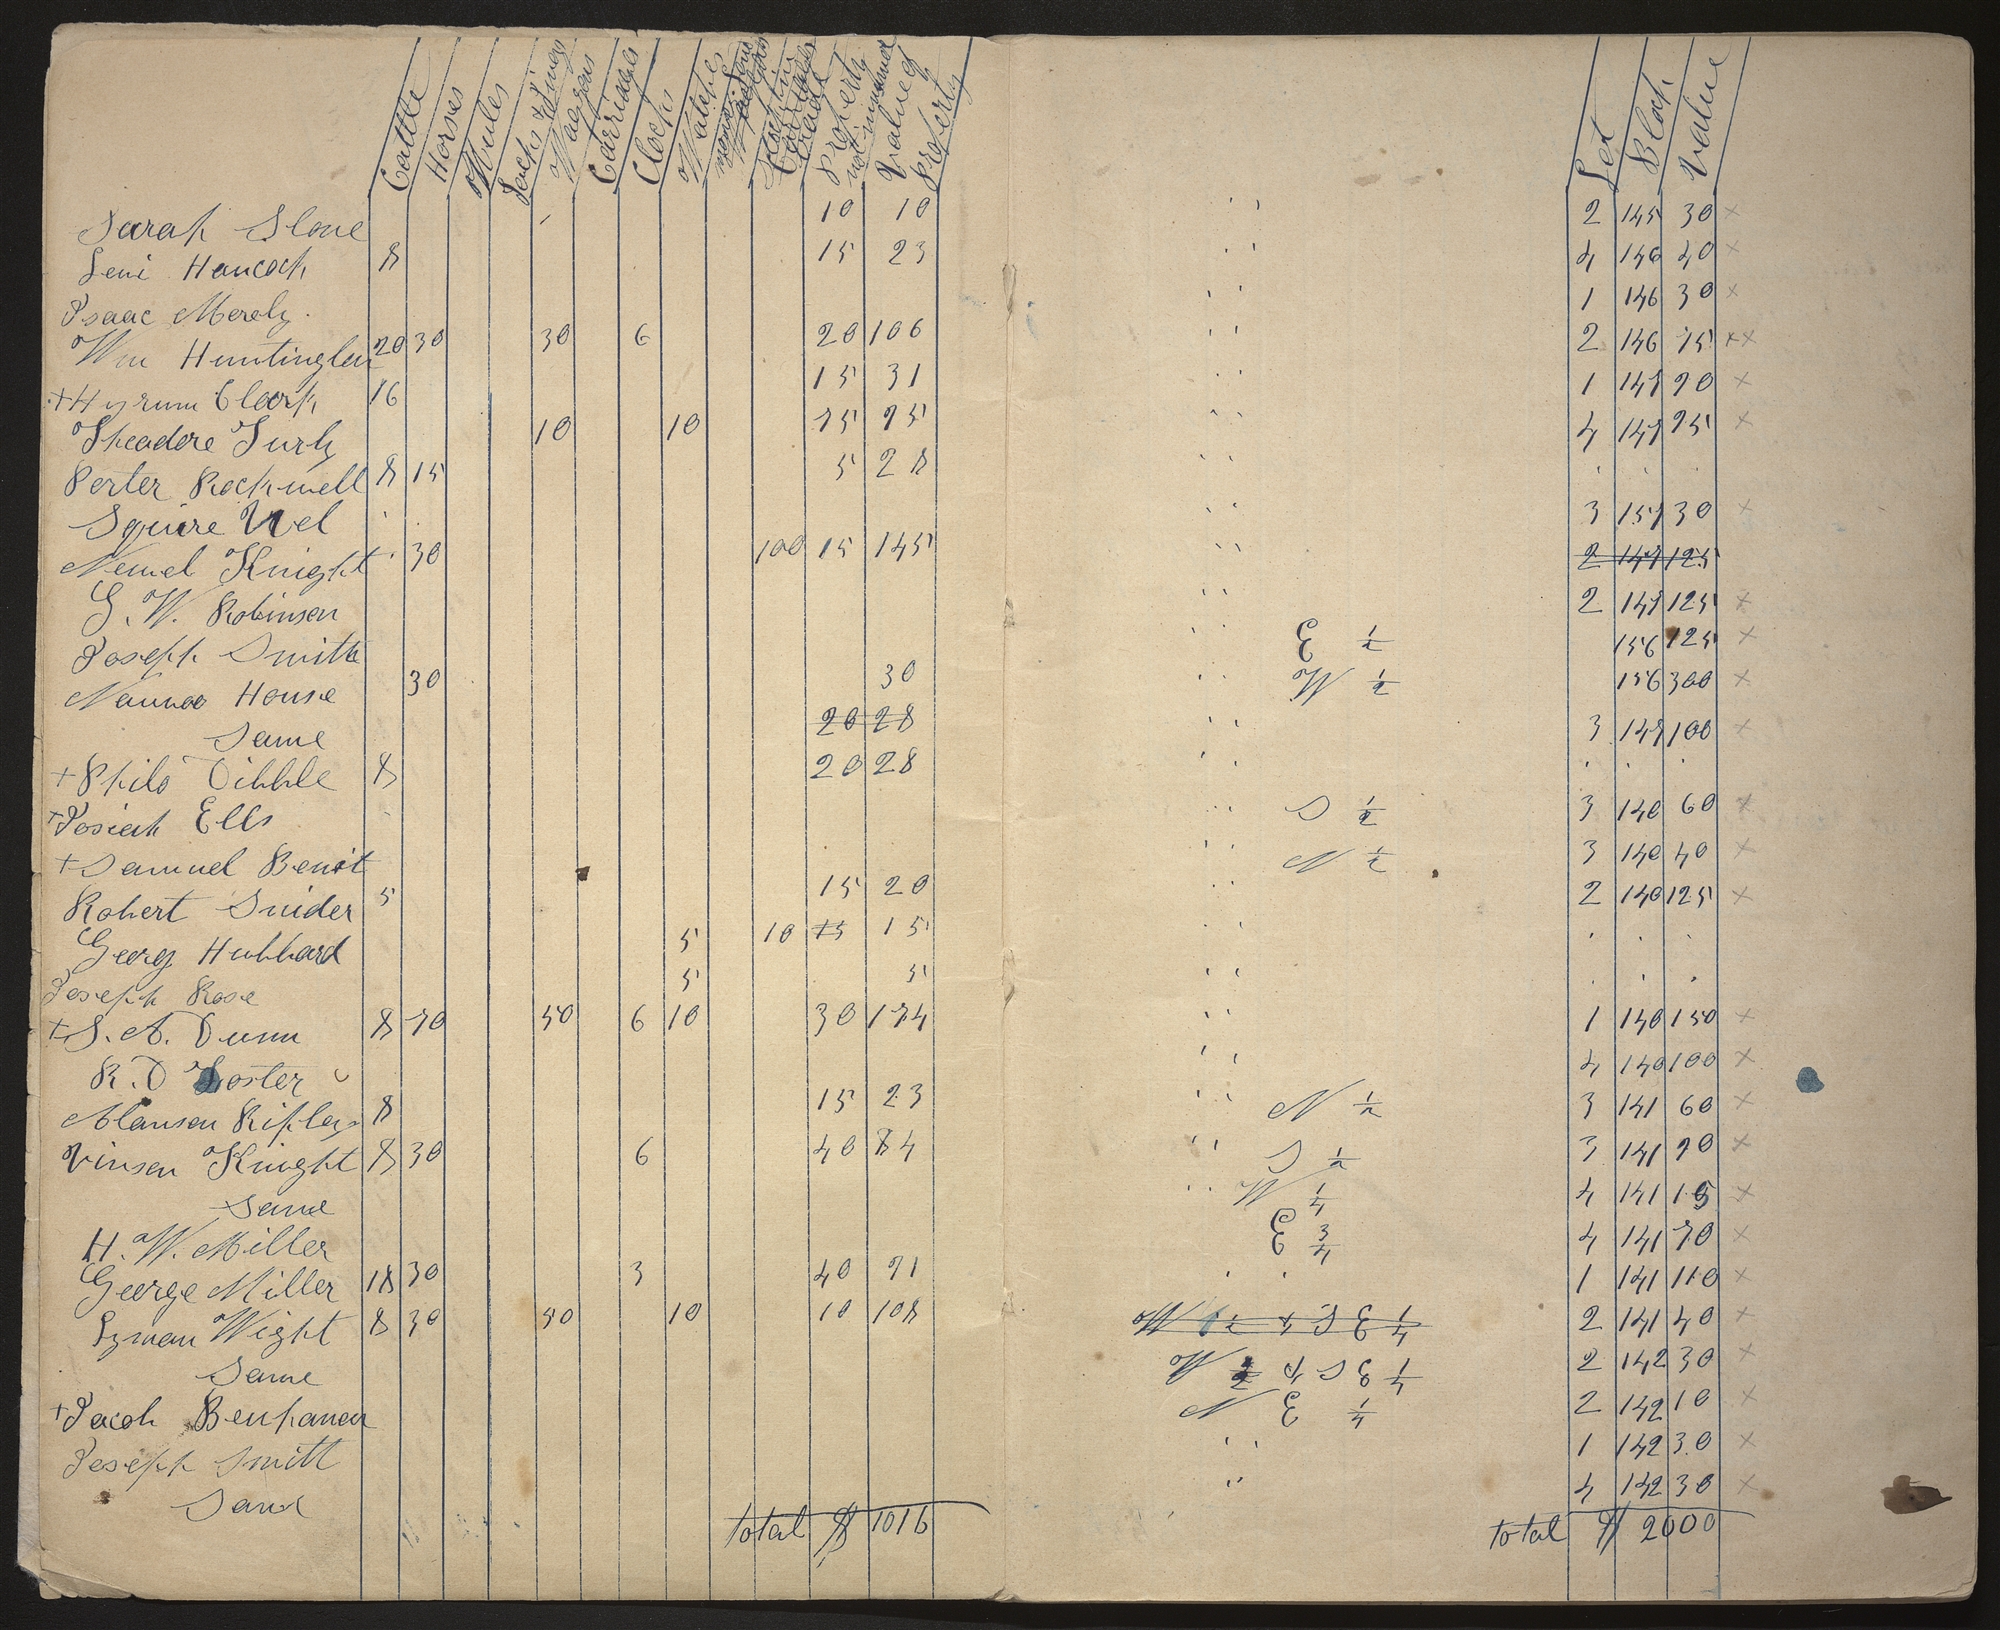 Cattle Horses Mules Jacks & Jineys Waggons Carriages Clocks Watches money Stock in trade Property not innumerd Value of property Lot Block Value
Sarah Slone 10 10 " 2 145 30 ×
Levi Hancock 8 15 23 " 4 146 40 ×
Isaac Morely. " 1 146 30 ×
Wm Huntington 20 30 30 6 20 106 " 2 146 75 ××
+ Hyrum Clark 16 15 31 " 1 147 90 ×
Theadore Turly 10 10 75 95 " 4 147 95 ×
Porter Rockwell 8 15 5 28 "
Squire Wel " 3 157 30 ×
Newel Knight 30 100 15 145 " 2 147 125
G. W. Robinson " 2 147 125 ×
Joseph Smith " E ½ 156 125 ×
Nauvoo House 30 30 " W ½ 156 300 ×
Same 20 28 " 3 147 100 ×
+ Philo Dibble 8 20 28 "
+ Josiah Ells " S ½ 3 140 60 ×
+ Samuel Benit " N ½ 3 140 40 ×
Robert Snider 5 15 20 " 2 140 125 ×
Georg Hubbard 5 10 15 15 "
Joseph Rose 5 5 "
+ S. A. Dunn 8 70 50 6 10 30 174 " 1 140 150 ×
R. D Foster " 4 140 100 ×
Alanson Ripley 8 15 23 " N ½ 3 141 60 ×
Vinson Knight 8 30 6 40 84 " S ½ 3 141 90 ×
Same " W ¼ 4 141 15 ×
H. W. Miller E ¾ 4 141 70 ×
George Miller 18 30 3 40 91 " 1 141 110 ×
Lyman Wight 8 30 50 10 10 108 2 141 40 ×
Same 2 142 30 ×
+ Jacob Benhanan N E ¼ 2 142 10 ×
Joseph Smith " 1 142 30 ×
Same " 4 142 30 ×
total $ 1016 total $ 2000